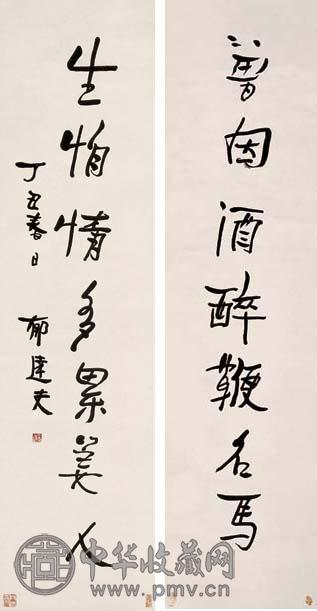 曾因酒醉鞭名馬
生怕情多累美人
丁丑春日
郁達夫
中华收藏网
www.pmv.cn